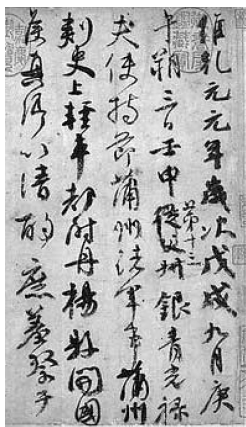 維乾元元年歲次戊戌九月庚
午朔三日壬申第十三從父銀青光祿
夫使持節蒲州諸軍事蒲州
刺史上輕車都尉丹楊縣開國
侯真卿以清酌庶羞祭于